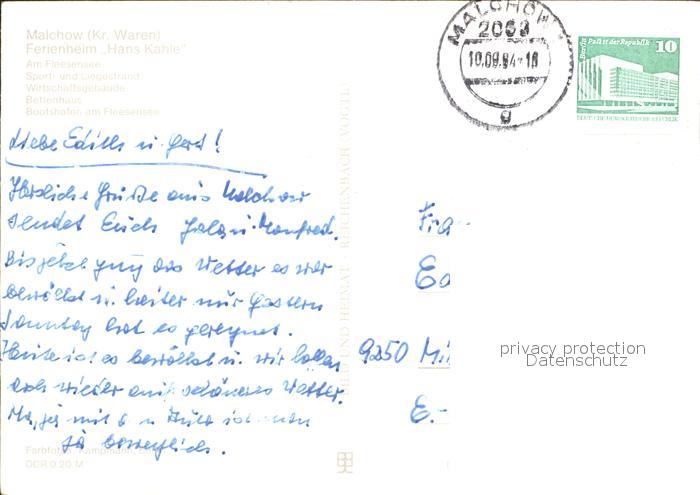 Malchow (Kr. Waren)
Ferienheim „Hans Kahle"
Am Fleesensee
Sport- und Liegestrand
Wirtschaftsgebäude
Bettenhaus
Bootshafen am Fleesensee
MALCHOW
2063
10.09.84-18
g
Berlin Palast der Republik
10
DEUTSCHE DEMOKRATISCHE REPUBLIK
Liebe Edith u. Gerd!
Herzliche Grüße aus Malchow
sendet Euch u. Manfred.
Bis jetzt ging das Wetter es war
bewölkt u. heiter nur gestern
Sonntag hat es geregnet.
Heute ist es bewölkt u. wir hoffen
doch wieder auf schöneres Wetter.
Na, ja mit u. ist man
ja beweglich.
Fra
Ed
9250 Mi
E.-
BILD UND HEIMAT REICHENBACH (VOGTL)
privacy protection
Datenschutz
Farbfoto: Kampmann,
DDR 0,20 M